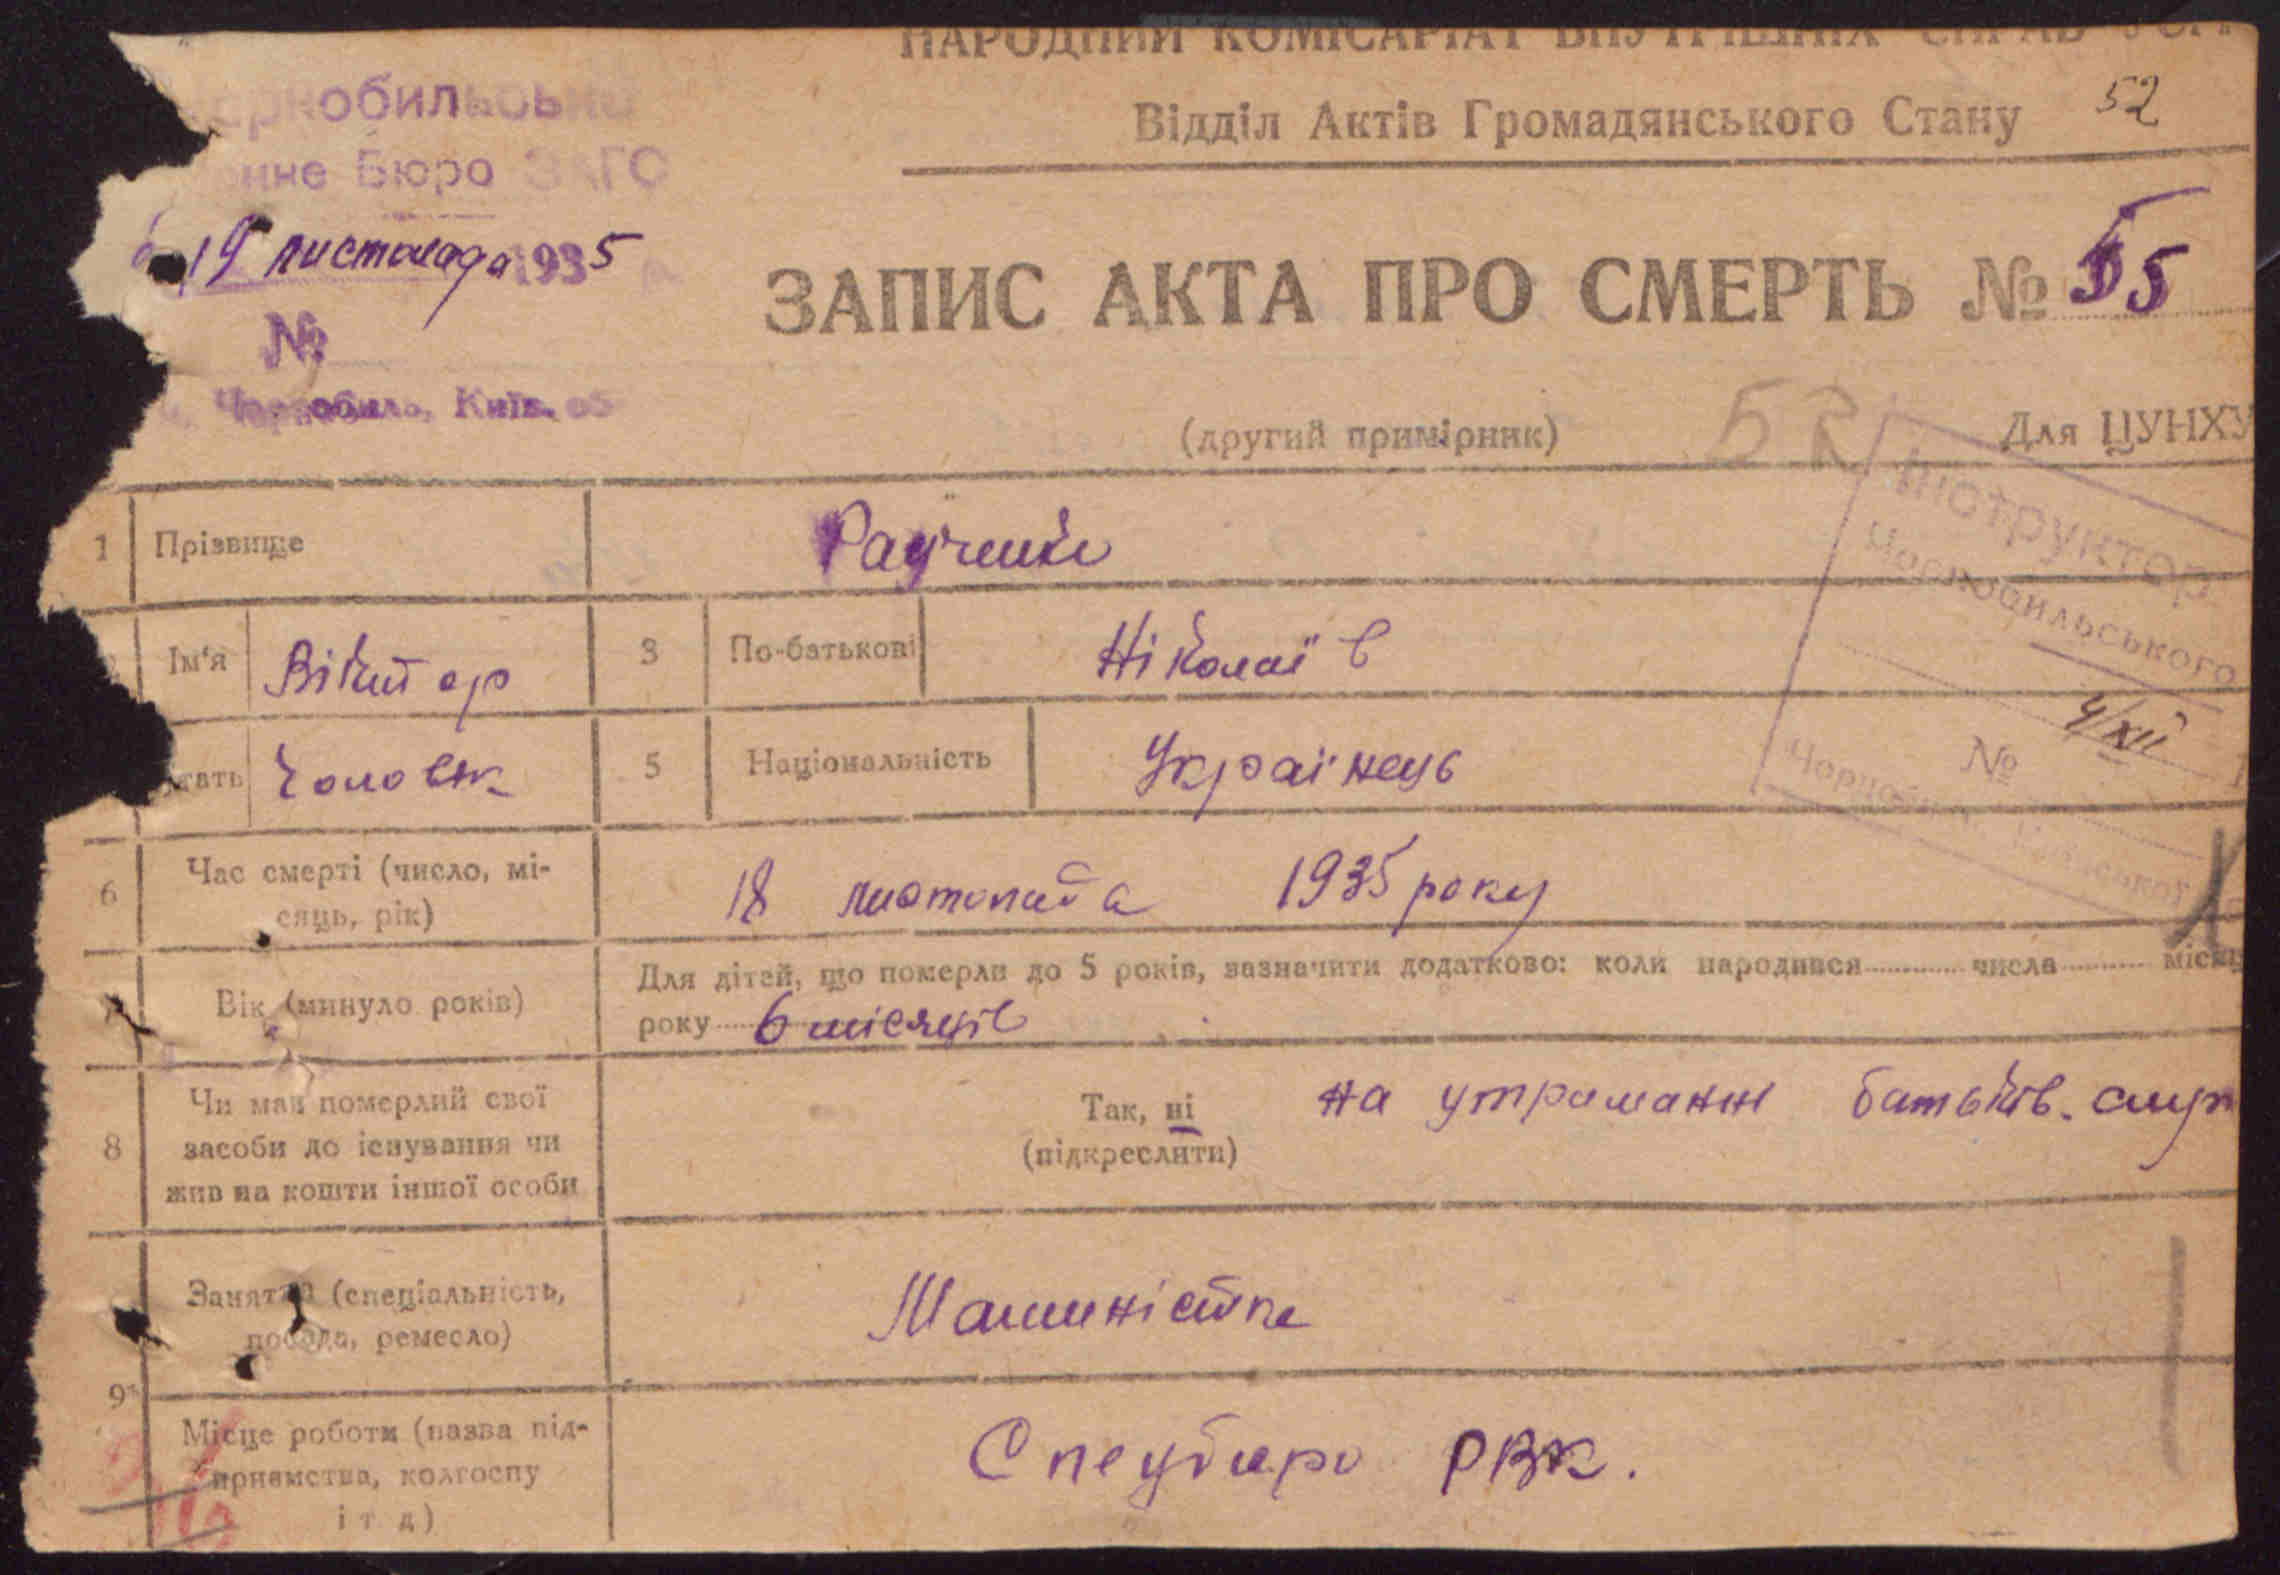 НАРОДНИЙ КОМІСАРІАТ ВНУТРІШНІХ СПРАВ УСРР
Відділ Актів Громадянського Стану 52
Чорнобильське
Бюро ЗАГС
19 листопада 1935
№
Чорнобиль, Київ. об
ЗАПИС АКТА ПРО СМЕРТЬ № 55
(другий примірник)
52
Для ЦУНХУ
Інструктор
Чорнобильського
4/XII
№
1 Прізвище
Ім'я Віктор 3 По-батькові Ніколаїв
стать Чоловік 5 Національність Українець
6 Час смерті (число, мі-
сяць, рік) 18 листопада 1935 року
7 Вік (минуло років) Для дітей, що померли до 5 років, зазначити додатково: коли народився числа місяц
року 6 місяців
8 Чи мав померлий свої
засоби до існування чи
жив на кошти іншої особи
Так, ні на утриманні батьків.
(підкреслити)
9 Заняття (спеціальність,
посада, ремесло) Машиністка
Місце роботи (назва під-
приємства, колгоспу
і т д) Спецбюро РВК.